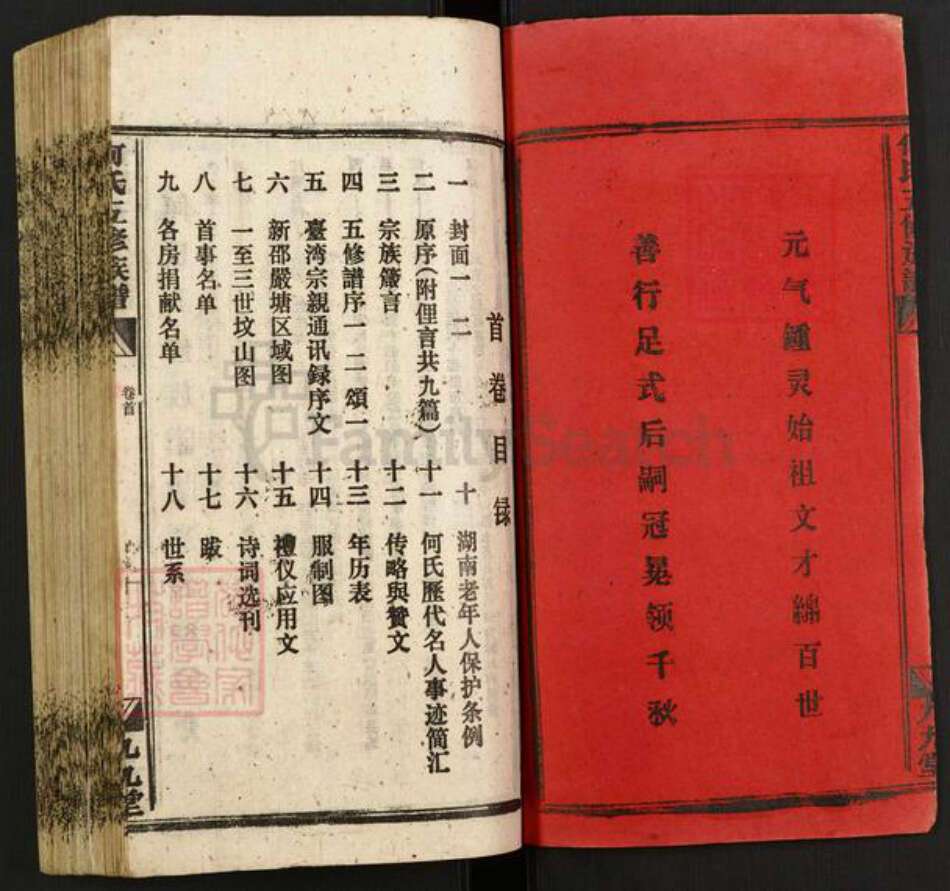 元气鍾灵始祖文才綿百世
善行足式后嗣冠冕领千秋
首卷目录
一 封面一 二
二 原序(附俚言共九篇)
三 宗族箴言
四 五修譜序一 二 頌一
五 臺湾宗親通讯録序文
六 新邵嚴塘区域图
七 一至三世坟山图
八 首事名单
九 各房捐献名单
十 湖南老年人保护条例
十一 何氏歷代名人事迹简汇
十二 传略與贊文
十三 年历表
十四 服制图
十五 禮仪应用文
十六 诗词选刊
十七 跋
十八 世系
何氏五修族譜
卷首
九九堂
FamilySearch